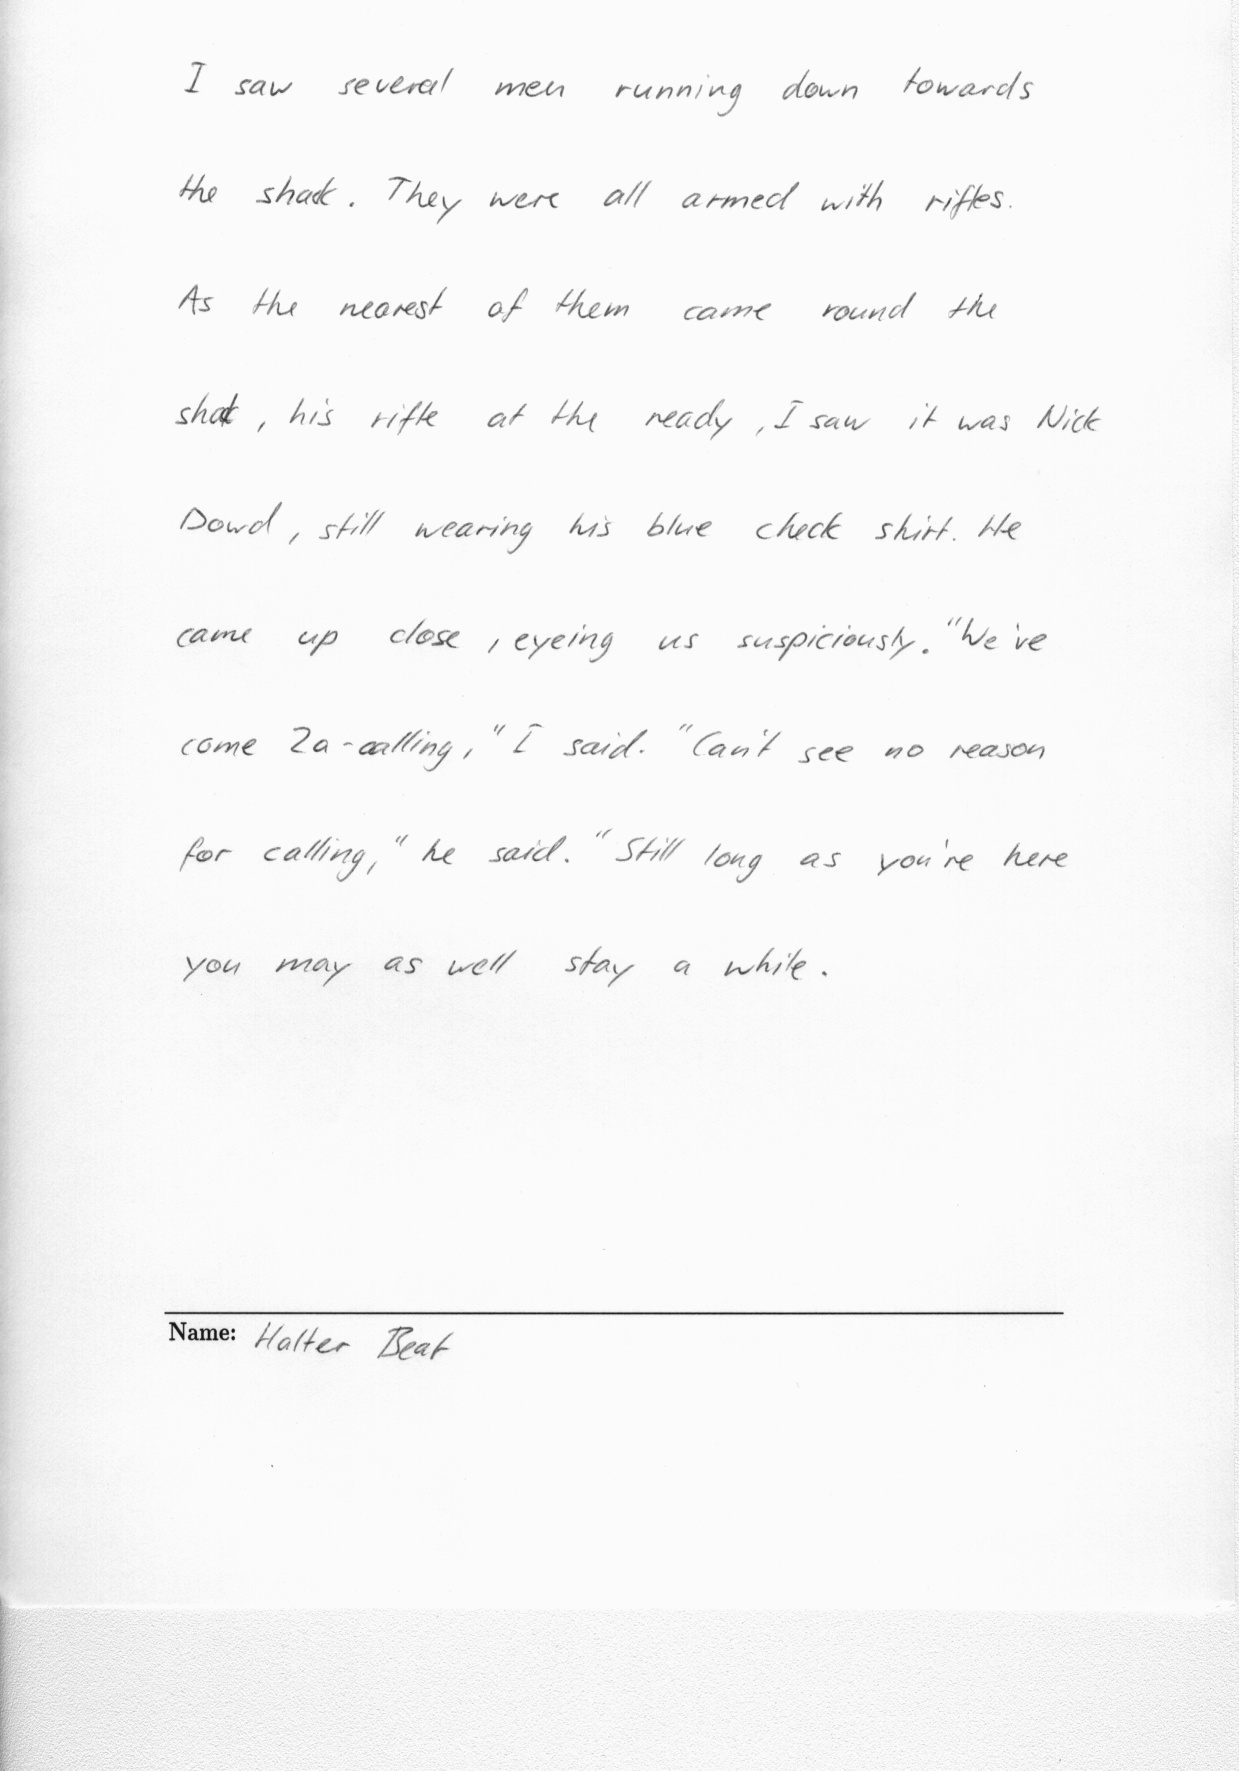 I saw several men running down towards
the shack. They were all armed with rifles.
As the nearest of them came round the
shack, his rifle at the ready, I saw it was Nick
Dowd, still wearing his blue check shirt. He
came up close, eyeing us suspiciously. "We've
come 2a-calling," I said. "Can't see no reason
for calling," he said. "Still long as you're here
you may as well stay a while.
Name: Halter Beat